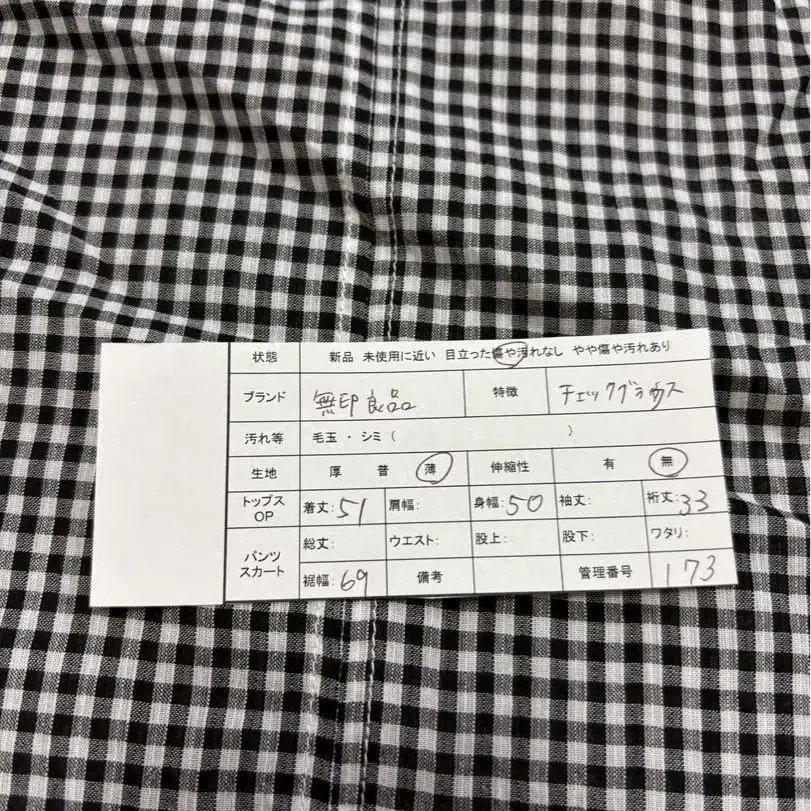 状態 新品 未使用に近い 目立った傷や汚れなし やや傷や汚れあり
ブランド 無印良品 特徴 チェックブラウス
汚れ等 毛玉 ・ シミ ( )
生地 厚 普 薄 伸縮性 有 無
トップス OP 着丈: 51 肩幅: 身幅: 50 袖丈: 裄丈: 33
パンツ スカート 総丈: ウエスト: 股上: 股下: ワタリ:
裾幅: 69 備考 管理番号 173